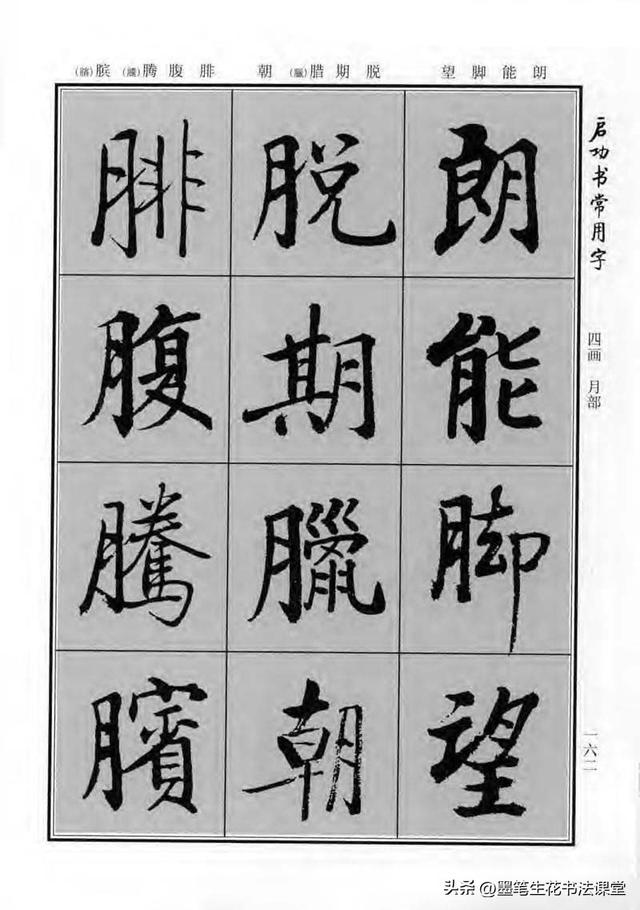 朗能脚望
脱期腊(臘)朝
腓腹腾(騰)膑(臏)
朗能脚望
脱期臘朝
腓腹騰臏
启功书常用字
四画 月部
一六二
头条 @墨笔生花书法课堂